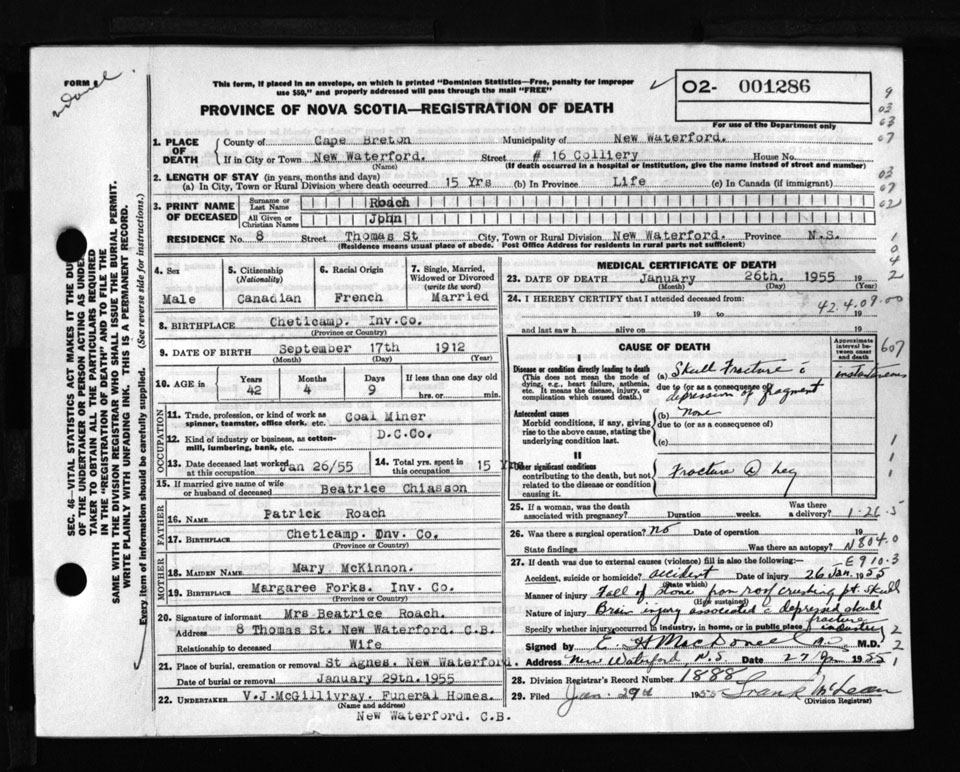 FORM 6
Done.
This form, if placed in an envelope, on which is printed "Dominion Statistics—Free, penalty for improper
use $50," and properly addressed will pass through the mail "FREE"
PROVINCE OF NOVA SCOTIA—REGISTRATION OF DEATH
O2- 001286
For use of the Department only
1. PLACE OF DEATH { County of Cape Breton Municipality of New Waterford.
If in City or Town New Waterford. Street # 16 Colliery House No.
(Name) (If death occurred in a hospital or institution, give the name instead of street and number)
2. LENGTH OF STAY (in years, months and days)
(a) In City, Town or Rural Division where death occurred 15 Yrs (b) In Province Life (c) In Canada (if immigrant)
3. PRINT NAME OF DECEASED { Surname or Last Name Roach
All Given or Christian Names John
RESIDENCE No. 8 Street Thomas St City, Town or Rural Division New Waterford. Province N.S.
(Residence means usual place of abode. Post Office Address for residents in rural parts not sufficient)
4. Sex Male
5. Citizenship (Nationality) Canadian
6. Racial Origin French
7. Single, Married, Widowed or Divorced (write the word) Married
8. BIRTHPLACE Cheticamp. Inv.Co.
(Province or Country)
9. DATE OF BIRTH September 17th 1912
(Month) (Day) (Year)
10. AGE in Years 42 Months 4 Days 9 If less than one day old hrs. or min.
OCCUPATION
11. Trade, profession, or kind of work as spinner, teamster, office clerk, etc. Coal Miner
12. Kind of industry or business, as cotton-mill, lumbering, bank, etc. D.C.Co.
13. Date deceased last worked at this occupation Jan 26/55
14. Total yrs. spent in this occupation 15 Yrs
15. If married give name of wife or husband of deceased Beatrice Chiasson
FATHER
16. NAME Patrick Roach
17. BIRTHPLACE Cheticamp. Inv. Co.
(Province or Country)
MOTHER
18. MAIDEN NAME Mary McKinnon.
19. BIRTHPLACE Margaree Forks. Inv. Co.
(Province or Country)
20. Signature of informant Mrs Beatrice Roach.
Address 8 Thomas St. New Waterford. C.B.
Relationship to deceased Wife
21. Place of burial, cremation or removal St Agnes. New Waterford.
Date of burial or removal January 29th.1955
22. UNDERTAKER V.J.McGillivray. Funeral Homes.
(Name and address)
New Waterford. C.B.
MEDICAL CERTIFICATE OF DEATH
23. DATE OF DEATH January 26th. 1955 19
(Month) (Day) (Year)
24. I HEREBY CERTIFY that I attended deceased from:
19 to 19
and last saw h alive on 19
42.4.09.00
607
CAUSE OF DEATH
Approximate interval between onset and death
I
Disease or condition directly leading to death
(This does not mean the mode of dying, e.g., heart failure, asthenia, etc. It means the disease, injury, or complication which caused death.)
(a) Skull Fracture c̄
due to (or as a consequence of)
depression of fragment
instantaneous
Antecedent causes
Morbid conditions, if any, giving rise to the above cause, stating the underlying condition last.
(b) None
due to (or as a consequence of)
(c)
II
Other significant conditions
contributing to the death, but not related to the disease or condition causing it.
Fracture Leg
25. If a woman, was the death associated with pregnancy? Duration weeks. Was there a delivery?
1-26-5
26. Was there a surgical operation? No
State findings Was there an autopsy? N804.0
27. If death was due to external causes (violence) fill in also the following: E910.3
Accident, suicide or homicide? accident Date of injury 26 Jan. 1955
(State which)
Manner of injury Fall of stone from roof crushing pt. skull
(How sustained)
Nature of injury Brain injury associated c̄ depressed skull fracture
Specify whether injury occurred in industry, in home, or in public place industry
Signed by E. H MacDonell M.D.
Address New Waterford, N.S Date 27 Jan 1955
28. Division Registrar's Record Number 1888
29. Filed Jan. 29th 1955 Frank McLean
(Division Registrar)
SEC. 46—VITAL STATISTICS ACT MAKES IT THE DUTY
OF THE UNDERTAKER OR PERSON ACTING AS UNDER-
TAKER TO OBTAIN ALL THE PARTICULARS REQUIRED
IN THE "REGISTRATION OF DEATH" AND TO FILE THE
SAME WITH THE DIVISION REGISTRAR WHO SHALL ISSUE THE BURIAL PERMIT.
WRITE PLAINLY WITH UNFADING INK. THIS IS A PERMANENT RECORD.
Every item of information should be carefully supplied. (See reverse side for instructions.)
9
03
03
07
03
07
02
1
0
4
2
1
1
1
2
2
1